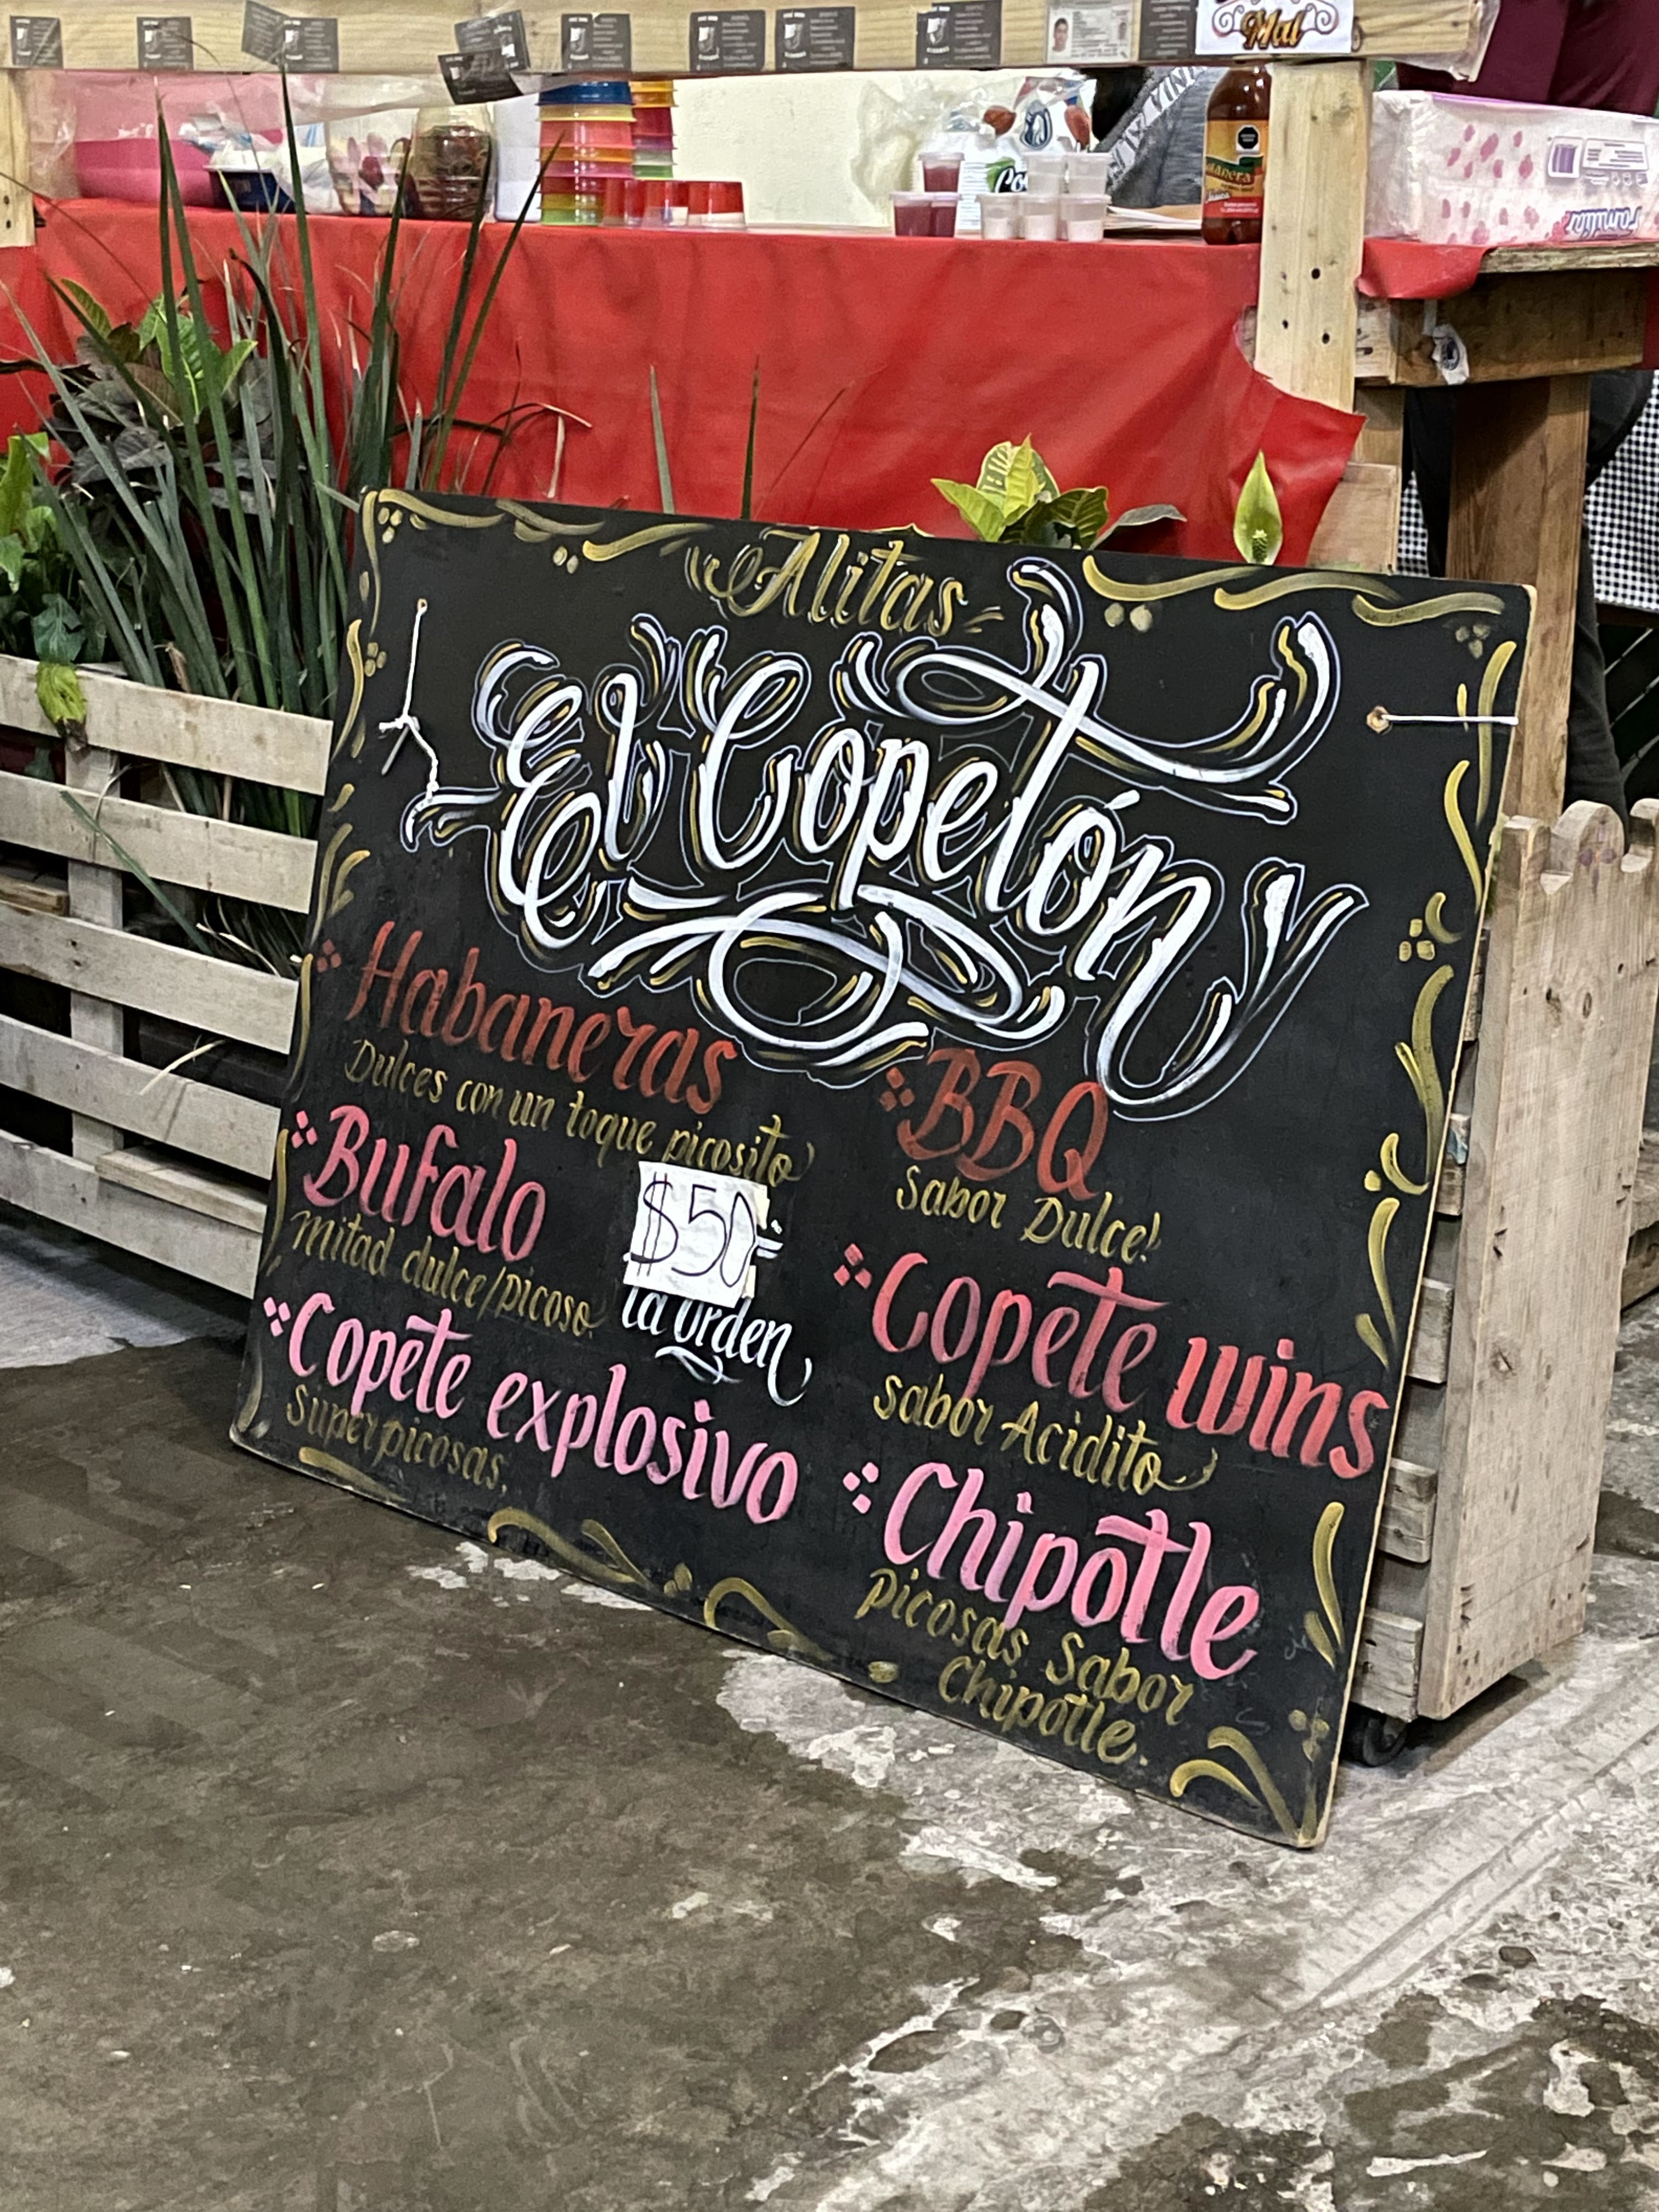 Mal
Co
Familia
Alitas
El Copetón
Habaneras
Dulces con un toque picosito
Bufalo
Mitad dulce/picoso.
$50
la orden
Copete explosivo
Super picosas.
BBQ
Sabor Dulce!
Copete wins
Sabor Acidito
Chipotle
Picosas Sabor
Chipotle.